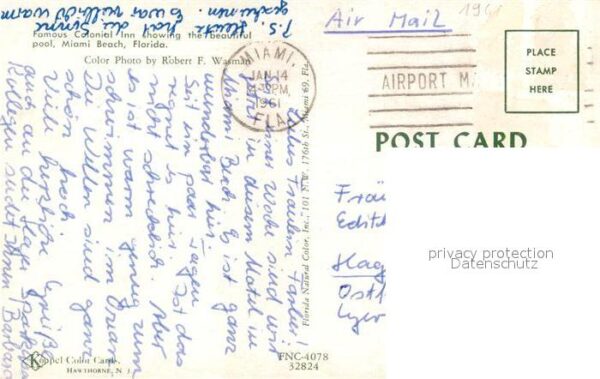 P.S. Heute hat die Sonne
geschienen. Es war herrlich warm
Famous Colonial Inn showing the beautiful
pool, Miami Beach, Florida.
Color Photo by Robert F. Wasman
Air Mail
196
MIAMI,
JAN 14
PM
1961
FLA.
AIRPORT M
PLACE
STAMP
HERE
POST CARD
Liebes Fräulein
Seit einer Woche sind wir
in diesem Motel in
Miami Beach. Es ist ganz
wunderbar hier.
Seit ein paar Tagen
regnet es hier. Ist das
nicht schrecklich. Aber
es ist warm genug zum
schwimmen im Ozean.
Die Wellen sind ganz
schön hoch.
Viele herzliche Grüße
auch an die
Kollegen sendet Ihnen Barbara
Florida Natural Color, Inc., 101 N.W. 176th St., Miami 69, Fla.
Fräu
Edith
Hag
Ostst
privacy protection
Datenschutz
Koppel Color Cards
HAWTHORNE, N. J.
FNC-4078
32824